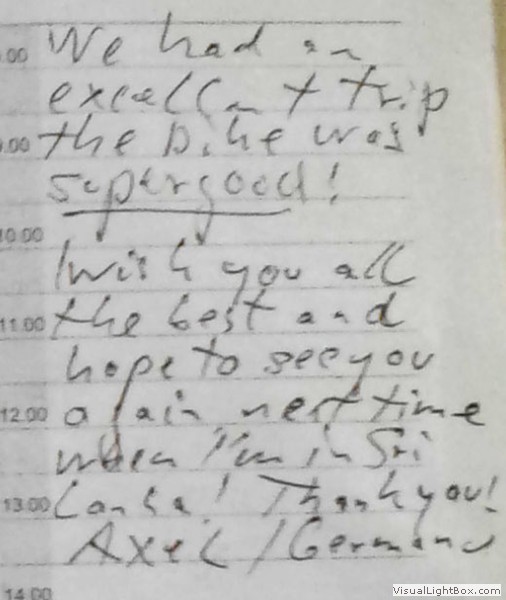 We had an
excellent trip
the bike was
supergood!
I wish you all
the best and
hope to see you
again next time
when I'm in Sri
Lanka! Thank you!
Axel / Germany
.00
9.00
10:00
11:00
12:00
13:00
14:00
VisualLightBox.com